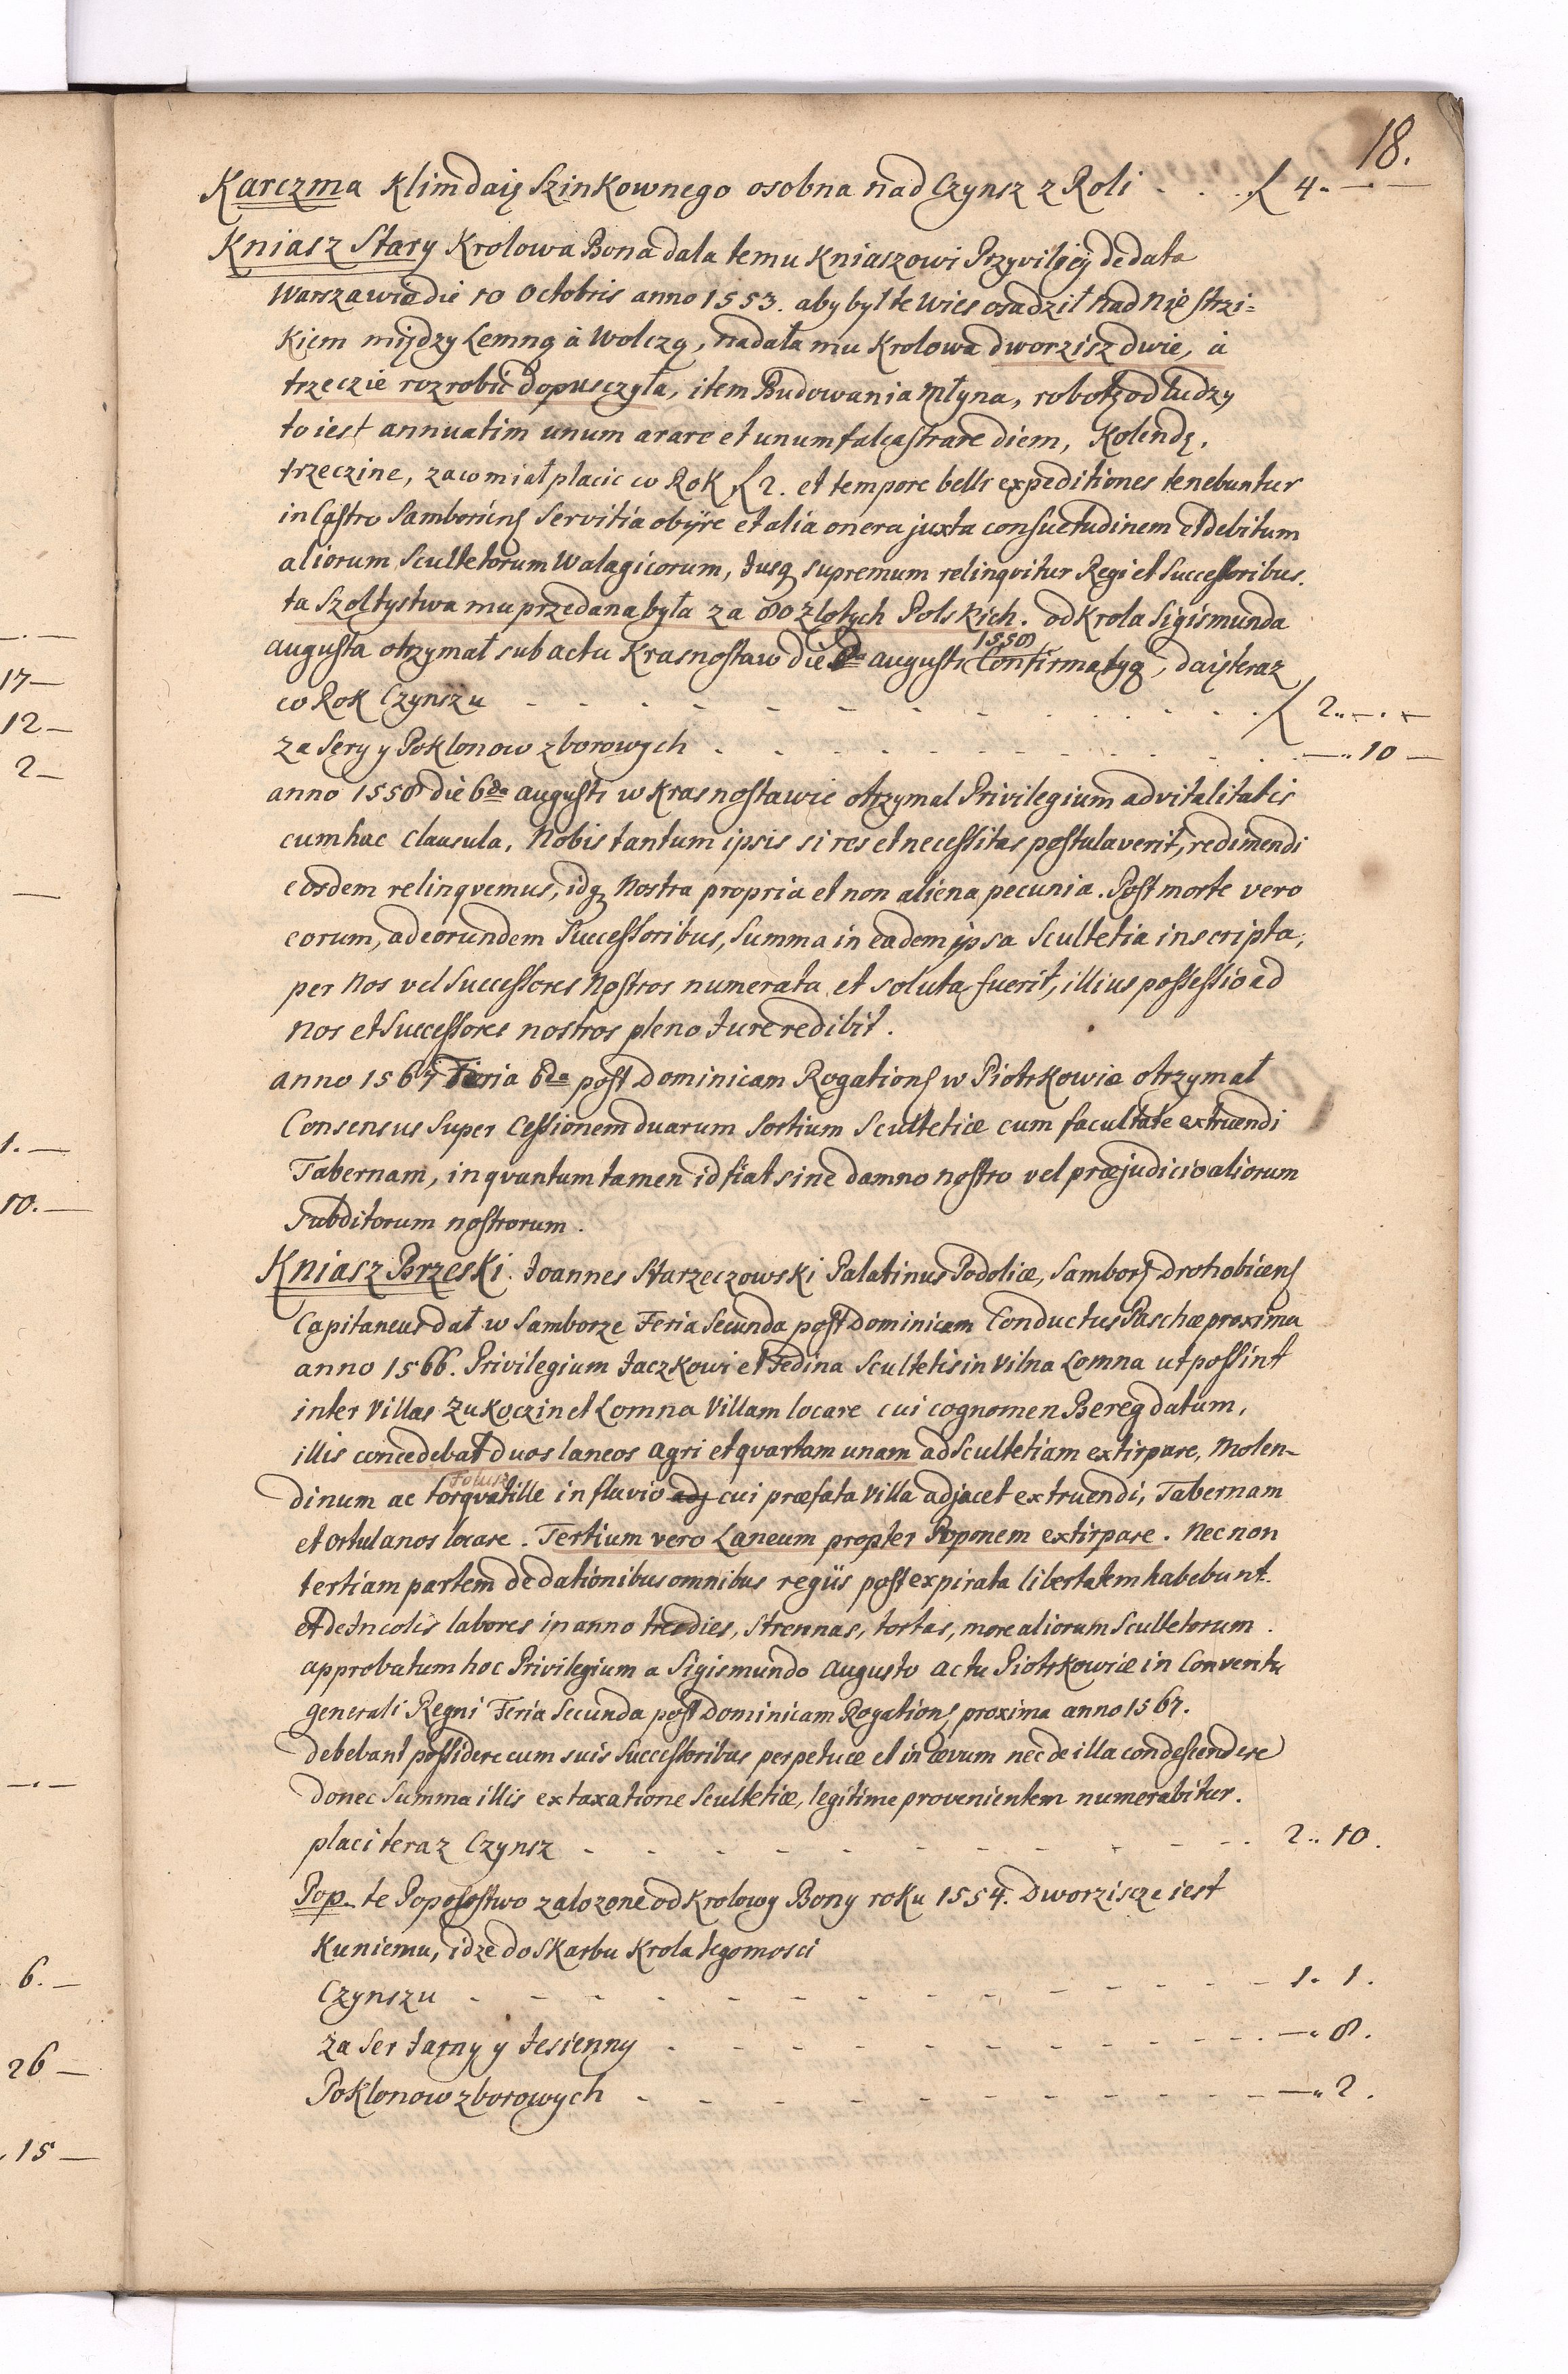 18.
Karczma Klim daię Szinkownego osobna nad Czynsz z Roli . . . ƒ 4 „ — . —
Kniasz Stary Krolowa Bona dala temu Kniaszowi Przyviliey de data
Warszawia die 10 Octobris anno 1553. aby byl te wies osadzil nad Niestrzi=
Kiem między Lemną à Wolczą, nadała mu Krolowa dworzisz dwie, à
trzeczie rozrobić dopusczyła, item Budowania Młyna, robotę od ludzy
to iest annuatim unum arare et unum falcastrare diem, Kolendę,
trzeczine, za co miał placic co Rok ƒ 2. et tempore belli expeditiones tenebuntur
in Castro Samboriens servitia obijre et alia onera juxta consuetudinem et debitum
aliorum Scultetorum Walagicorum, Jusq supremum relinqvitur Regi et Successoribus.
ta Szoltystwa mu przedana była za 80 zlotych Polskich. od Krola Sigismunda
1558
Augusta otrzymał sub actu Krasnostaw die 6ta Augusti Confirmatyą, daię teraz
co Rok Czynszu - - - - - - - - - ƒ 2 „ — . —
za Sery y Poklonow zborowych - - - - - - - — „ 10 —
anno 1558 die 6da Augusti w Krasnostawie otrzymal Privilegium advitalitatis
cum hac clausula, Nobis tantum ipsis si res et necessitas postulaverit, redimendi
eosdem relinqvemus, idq Nostra propria et non aliena pecunia. Post morte vero
eorum, ad eorundem Successoribus, Summa in eadem ipsa Scultetia inscripta,
per Nos vel Successores Nostros numerata et soluta fuerit, illius possessio ad
Nos et Successores nostros pleno Jure redibit.
anno 1567 Feria 6da post Dominicam Rogations w Piotrkowie otrzymał
Consensus Super Cessionem duarum Sortium Scultetiæ cum facultate extruendi
Tabernam, in qvantum tamen id fiat sine damno nostro vel præjudicio aliorum
Subditorum nostrorum.
Kniasz Brzeski. Joannes Starzeczowski Palatinus Podoliæ, Sambors Drohobicens
Capitaneus dał w Samborze Feria Secunda post Dominicam Conductus Paschæ proxima
anno 1566. Privilegium Jaczkowi et Fedina Scultetis in Vilna Lomna ut possint
inter Villas Zukoczin et Lomna Villam locare cui cognomen Bereg datum,
illis concedebat duos laneos agri et qvartam unam ad Scultetiam extirpare, Molen-
folusz
dinum ac torqvatille in fluvio adj cui præfata Villa adjacet extruendi, Tabernam
et ortulanos locare. Tertium vero Laneum propter Poponem extirpare. Nec non
tertiam partem de dationibus omnibus regiis post expirata libertatem habebunt.
et de Incolis labores in anno tres dies, Strennas, tortas, more aliorum Scultetorum.
approbatum hoc Privilegium a Sigismundo Augusto actu Piotrkowiæ in Conventu
generali Regni Feria Secunda post Dominicam Rogations proxima anno 1567.
debebant possidere cum suis Successoribus perpetuæ et in ævum nec de illa condescendere
donec Summa illis ex taxatione Scultetiæ, legitime provenientem numerabitur.
placi teraz Czynsz - - - - - - - - - 2 „ 10.
Pop te Popostwo zalozone od Krolowy Bony roku 1554. Dworziscze iest
Kuniemu, idze do Skarbu Krola Jegomosci
Czynszu - - - - - - - - - 1 „ 1.
za Ser Jarny y Jesienny - - - - - - - — „ 8.
Poklonow zborowych - - - - - - - — „ 2.
17 —
12 —
2 —
1. —
10. —
6. —
26 —
15 —